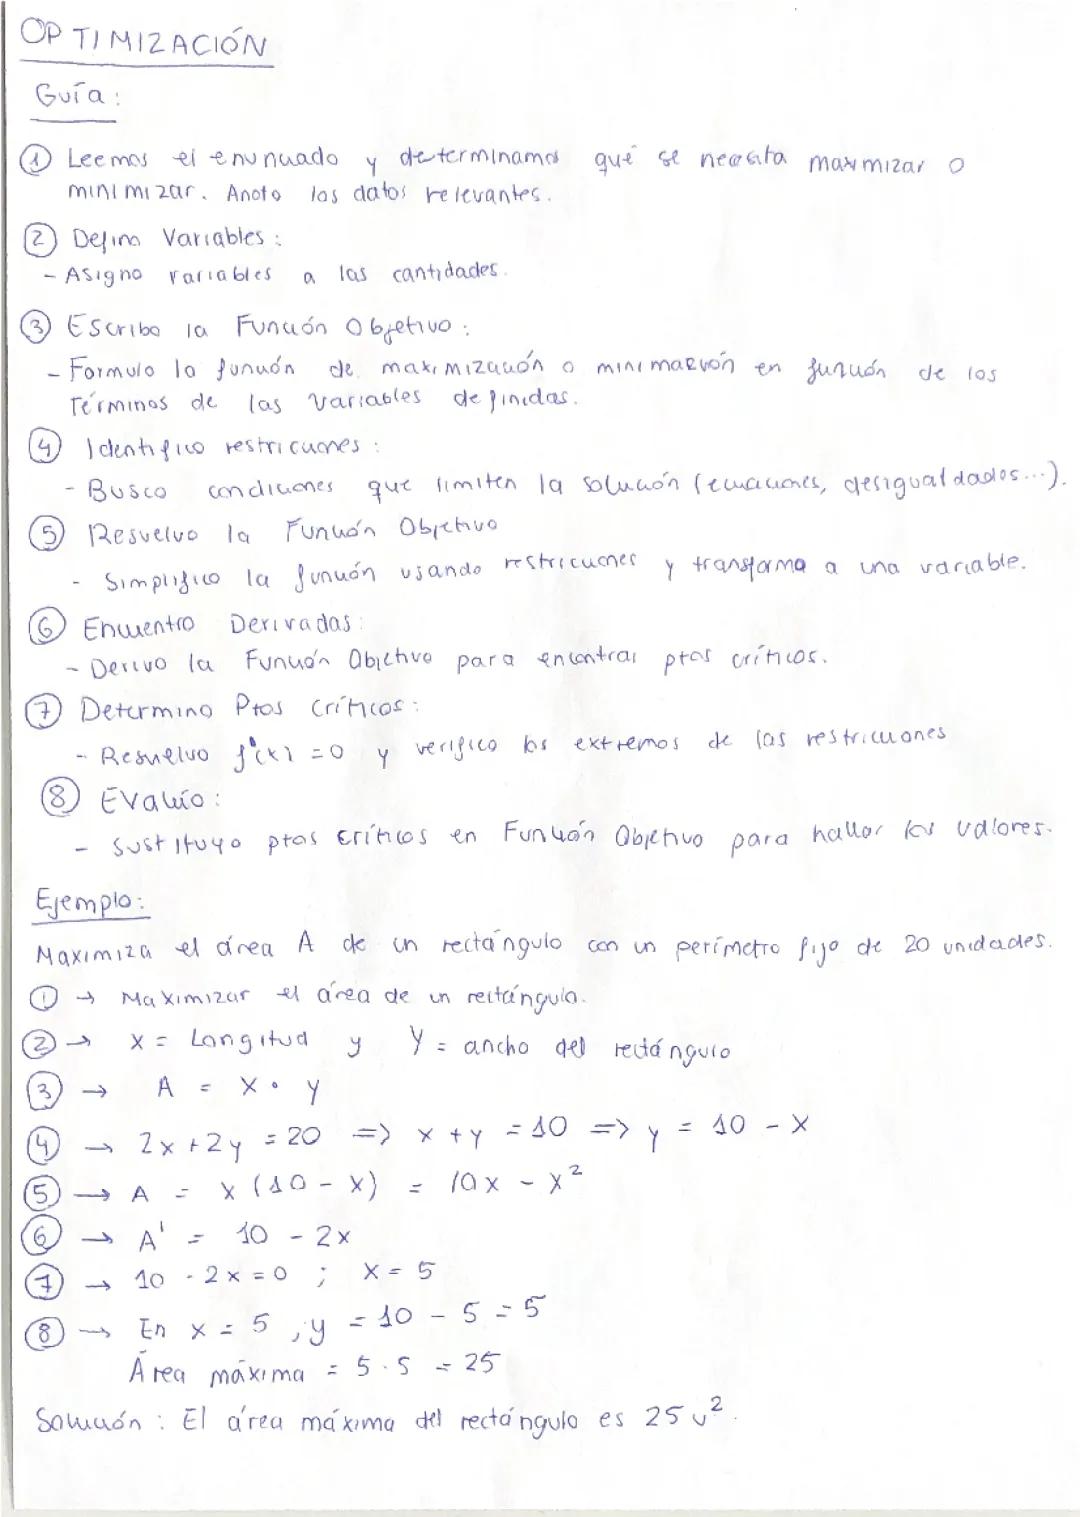 OPTIMIZACIÓN
Guía:
① Leemos el enunciado y determinamos qué se necesita maximizar o
minimizar. Anoto los datos relevantes.
② Defino Variables:
- Asigno variables a las cantidades.
③ Escribo la Función Objetivo:
- Formulo la función de maximización o minimización en función de los
Términos de las variables definidas.
④ Identifico restricciones:
- Busco condiciones que limiten la solución (ecuaciones, desigualdades...).
⑤ Resuelvo la Función Objetivo
- Simplifico la función usando restricciones y transforma a una variable.
⑥ Encuentro Derivadas:
- Derivo la Función Objetivo para encontrar ptos críticos.
⑦ Determino Ptos Críticos:
- Resuelvo f'(x) = 0 y verifico los extremos de las restricciones
⑧ Evalúo:
- Sustituyo ptos críticos en Función Objetivo para hallar los valores.
Ejemplo:
Maximiza el área A de un rectángulo con un perímetro fijo de 20 unidades.
① → Maximizar el área de un rectángulo.
② → x = Longitud y Y = ancho del rectángulo
③ → A = x · y
④ → 2x + 2y = 20 => x + y = 10 => y = 10 - x
⑤ → A = x (10 - x) = 10x - x²
⑥ → A' = 10 - 2x
⑦ → 10 - 2x = 0 ; x = 5
⑧ → En x = 5, y = 10 - 5 = 5
Área máxima = 5 · 5 = 25
Solución: El área máxima del rectángulo es 25 u².